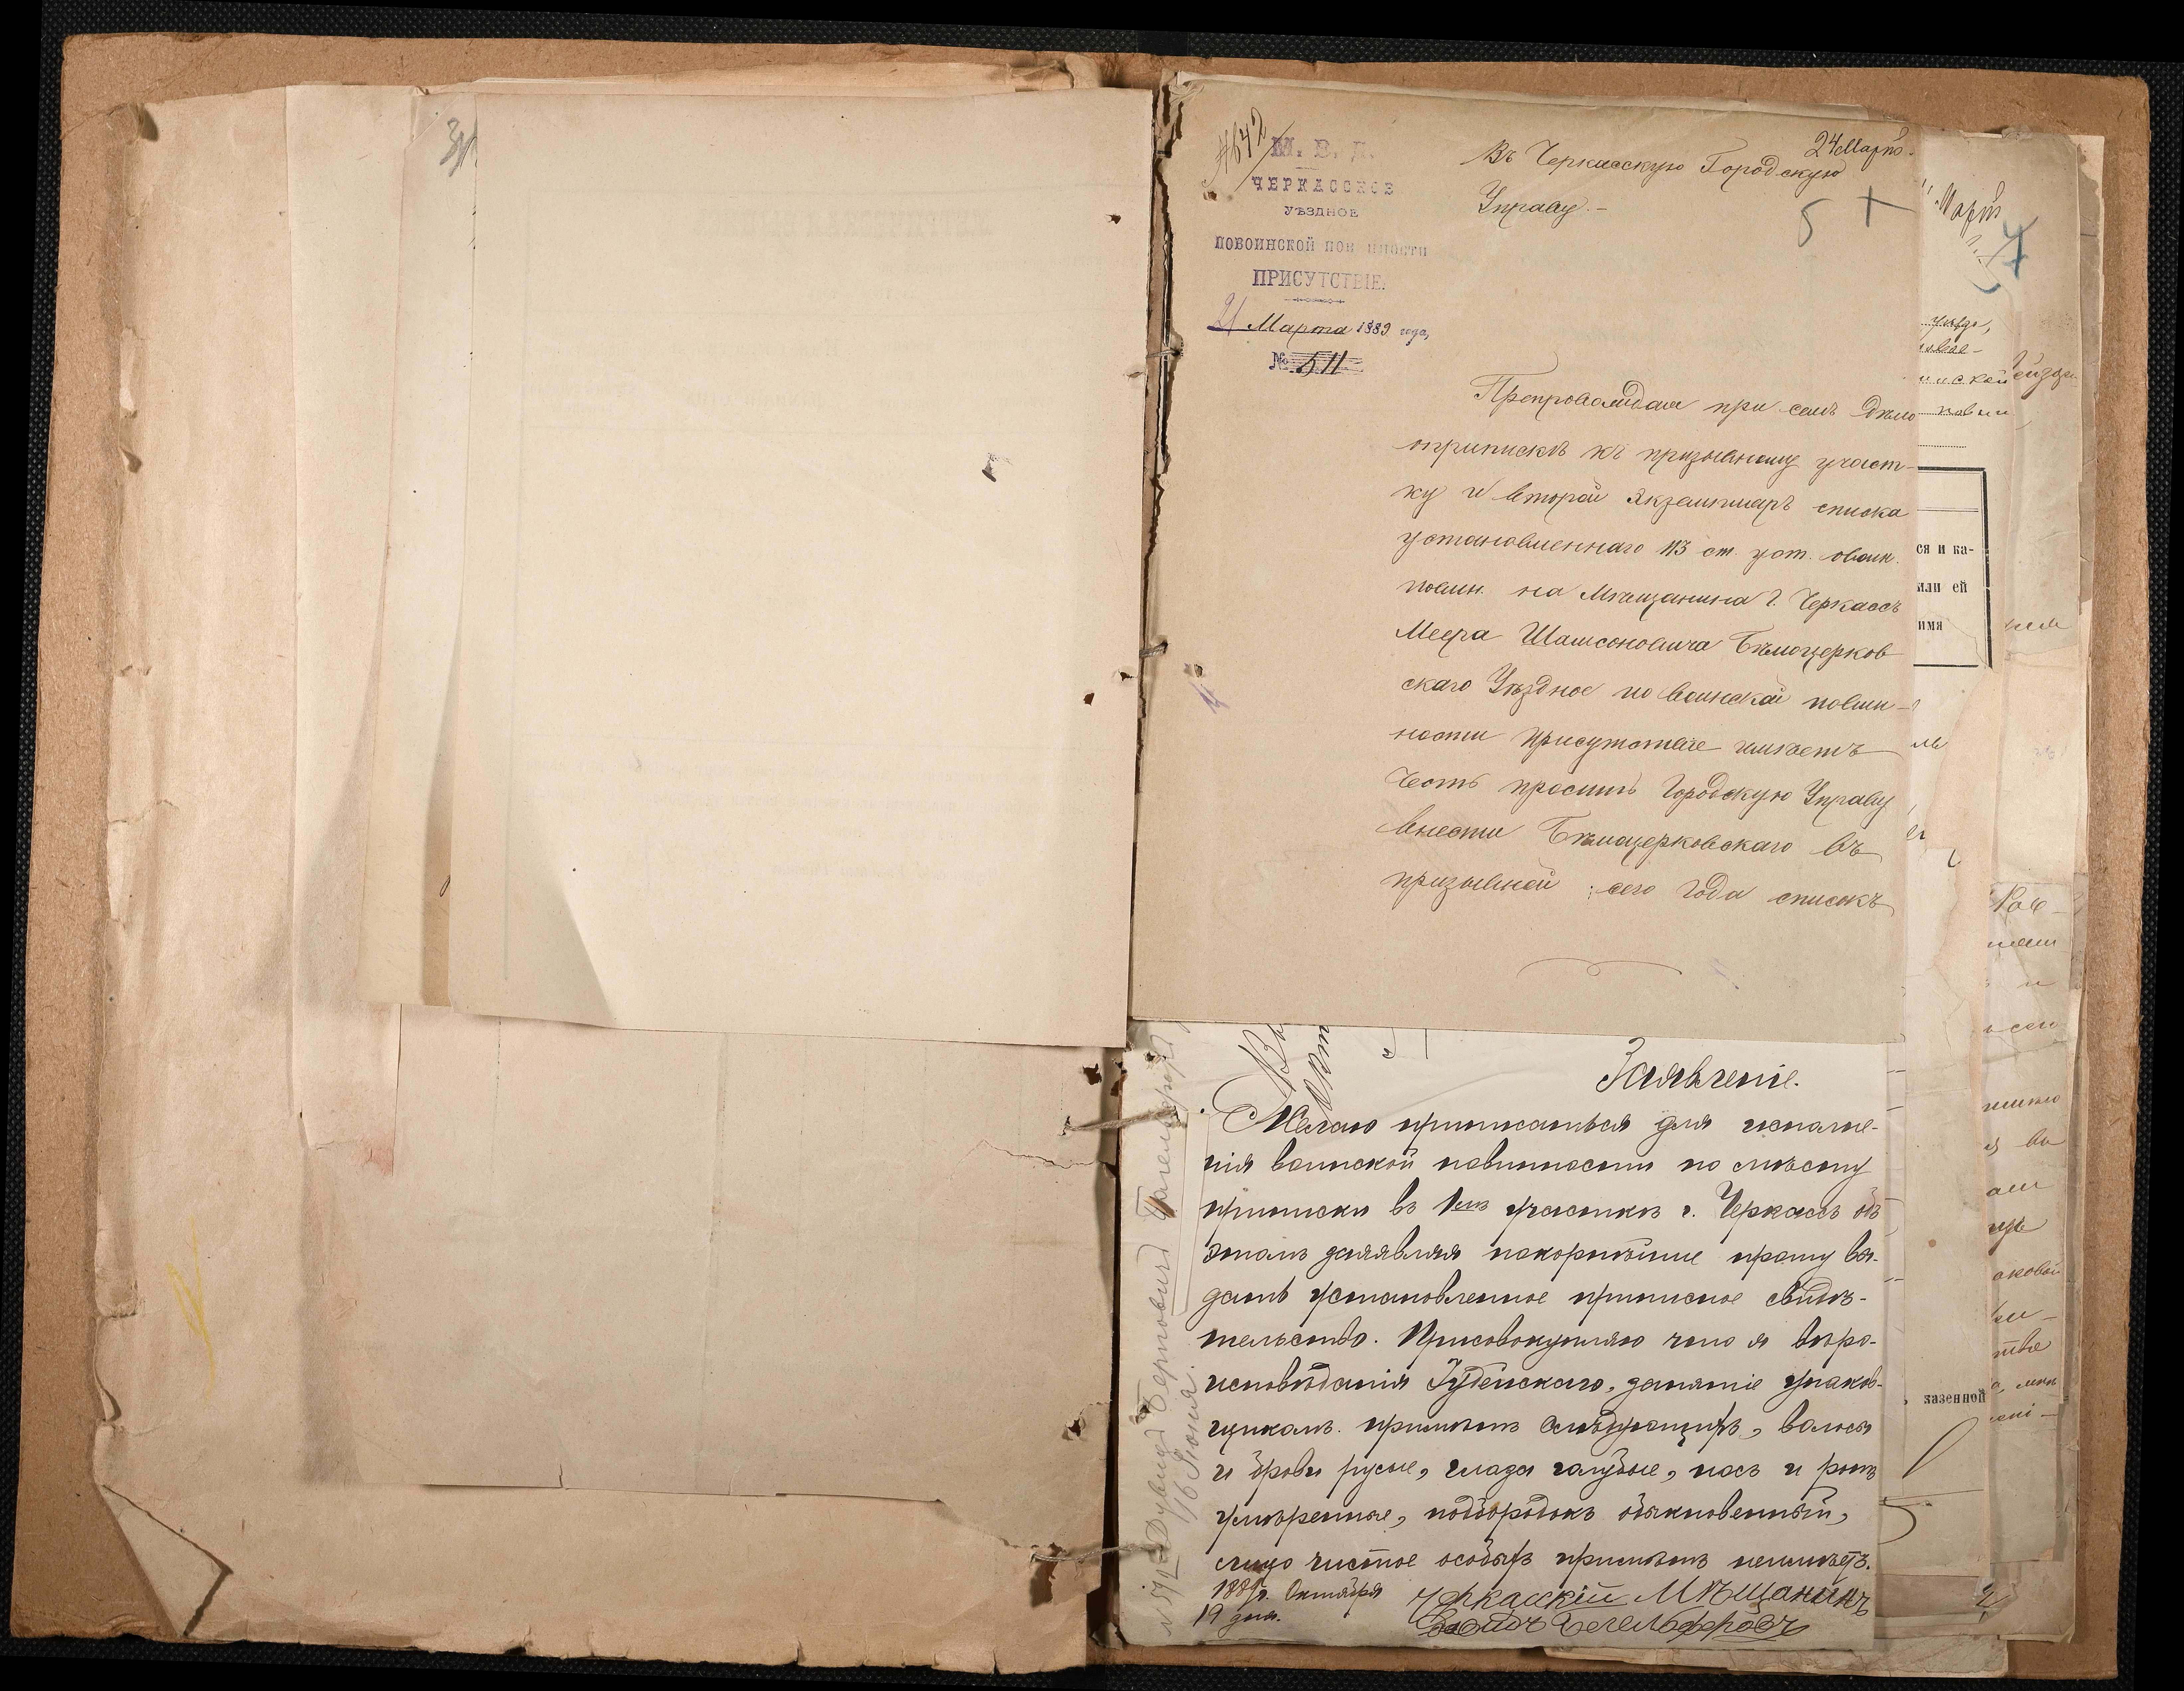 № 642
М. В. Д.
ЧЕРКАССКОЕ
УѢЗДНОЕ
ПО ВОИНСКОЙ ПОВИННОСТИ
ПРИСУТСТВІЕ.
21 Марта 1889 года,
№ 511
24 Марта
Въ Черкасскую Городскую
Управу.-
5
Препровождая при семъ дѣло
о припискѣ къ призывному участ-
ку и второй экземпляръ списка
установленнаго 113 ст. уст. о воин.
повин. на Мѣщанина г. Черкассъ
Меера Шамсоновича Бѣлоцерков
скаго Уѣздное по воинской повин-
ности присутствіе имѣетъ
честь просить Городскую Управу
внести Бѣлоцерковскаго въ
призывной сего года списокъ
Заявленіе.
Желаю приписаться для исполне-
нія воинской повинности по мѣсту
приписки въ 1мъ участкѣ г. Черкассъ объ
этомъ заявляя покорнѣйше прошу вы-
дать установленное приписное свидѣ-
тельство. Присовокупляю что я вѣро-
исповѣданія Іудейскаго, занятіе упаков-
щикомъ. примѣтъ слѣдующихъ, волосы
и брови русые, глаза голубые, носъ и ротъ
умѣренные, подбородокъ обыкновенный,
лицо чистое особыхъ примѣтъ неимѣетъ.
1889 г. Октября
19 дня.
Черкасскій Мѣщанинъ
16 Іюня
Мартъ
ся и ка-
или ей
имя
казенной